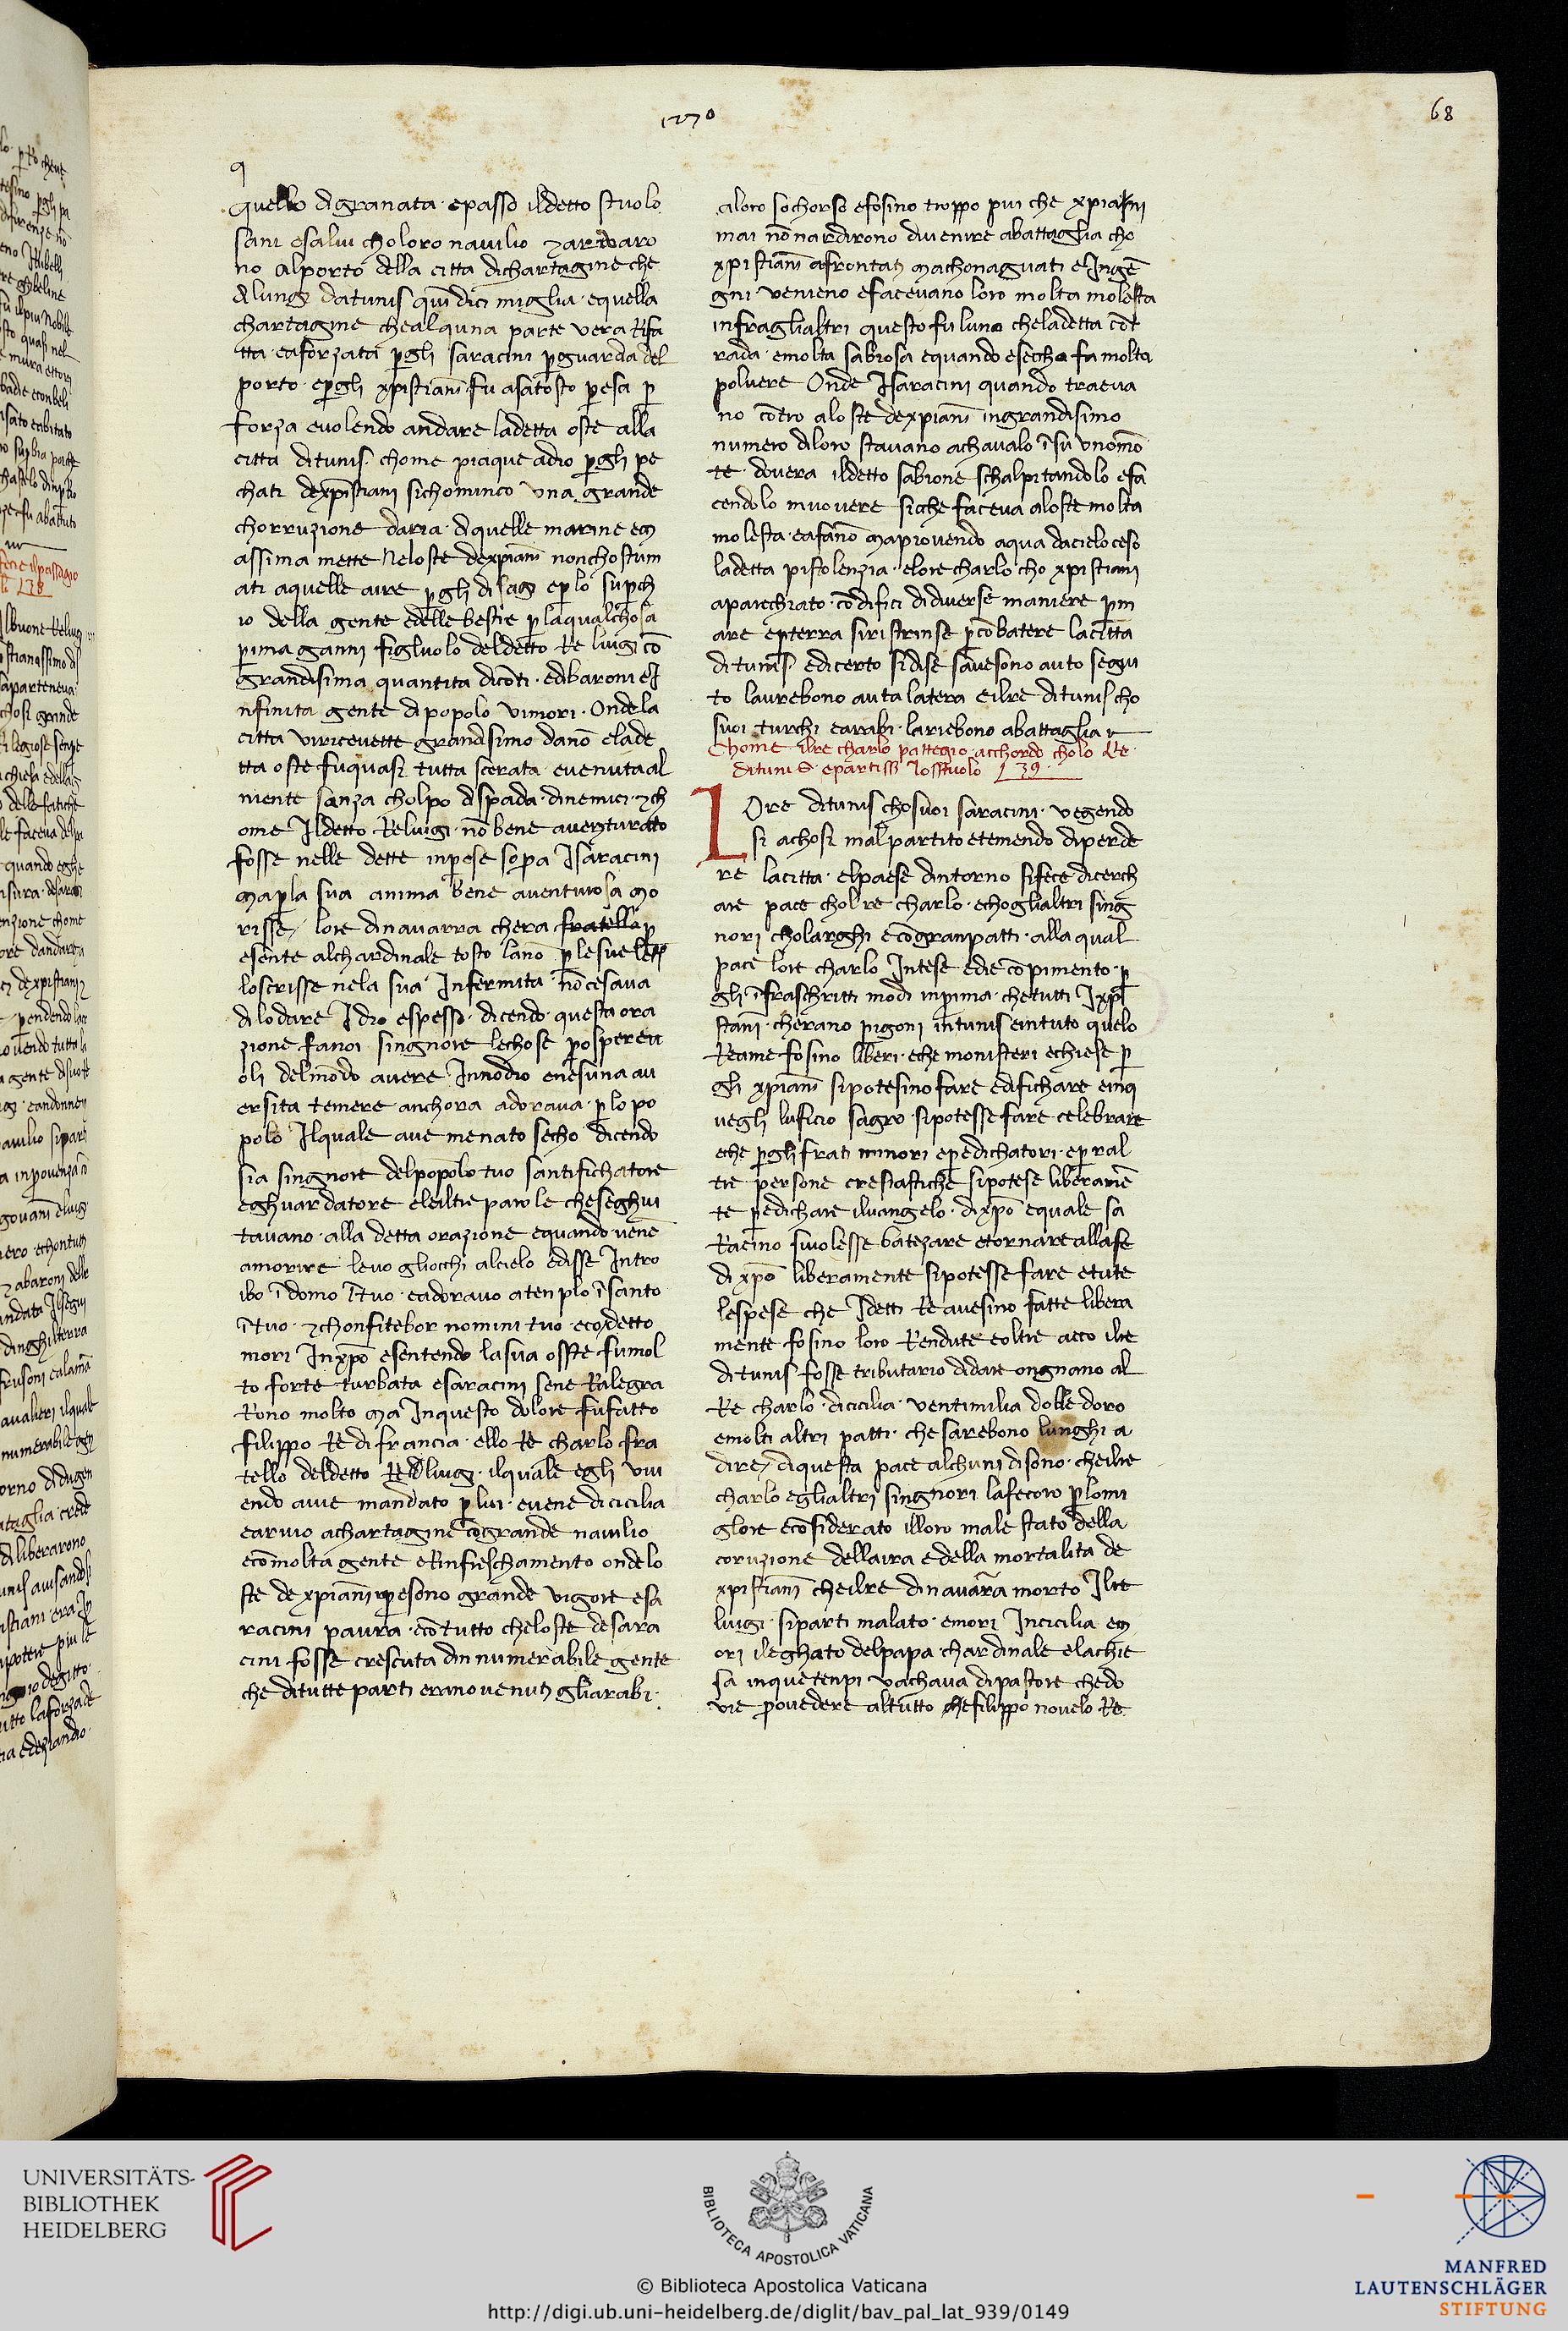 1270
68
q
quello di granata · e passo il detto stuolo
sani e salui cho loro nauilio ⁊ ariuaro
no al porto della citta di chartagine che
di lungi da tunisi quindici miglia · e quella
chartagine che alquna parte vera Rifa
tta · e aforzata p̱ gli saracini p̱ guardia del
porto · e p̱ gli xp̄istiani fu asai tosto p̱esa p̱
forza e uolendo andare la detta oste alla
citta di tunisi · chome piaque a dio p̱ gli pe
chati de xp̄istiani si chomincio vna grande
chorruzione daria · di quelle marine e m
assima mette ne loste de xp̄iani non chostum
ati a quelle aire p̱ gli disagi e p̱ lo sup̱ch
io della gente e delle bestie p̱ la qual chosa
p̱ima gianni figluolo del detto Re luigi cō
grandisima quantita di cōti · e di baroni e I
nfinita gente di popolo vi mori · Onde la
citta vi riceuette grandisimo danō e la de
tta oste fu quasi tutta scerata · e uenuta al
niente sanza cholpo di spada · di nemici · ⁊ ch
ome Il detto Re luigi · nō bene auenturato
fosse nelle dette inp̱ese sop̱a I saracini
ma p̱ la sua anima bene auenturosa mo
risse / lo re di nauarra chera fratello p̱
esente al chardinale tosto lanō p̱ le sue lett
lo scrisse ne la sua Infermita · nō cesaua
di lodare Idio e spesso · dicendo · questa ora
zione fa noi singnore le chose p̱osp̱ereu
oli del mōdo auere In nodio e nesuna au
ersita temere · anchora adoraua · p̱ lo po
polo Il quale aue menato secho dicendo
sia singnore del popolo tuo santifichatore
e ghuardatore e le altre parole che seghui
tauano · alla detta orazione e quando · uene
a morire leuo gli occhi al cielo e disse Intro
ibo ī domo t̄tuo · e adorauo a tenplo ī santo
t̄tuo · ⁊ chonfitebor nomini tuo · e co detto
mori In xp̄o e sentendo la sua osste fu mol
to forte turbata e saracini sene Ralegra
Rono molto ma In questo dolore fu fatto
filippo Re di francia · e llo Re charlo fra
tello del detto Re luigi · il quale egli viu
endo auie mandato p̱ lui · e uene di cicilia
e ariuo a chartagine cō grande nauilio
e cō molta gente e Rinfreschamento onde lo
ste de xp̄iani p̱esono grande vigore e sa
racini paura · e cō tutto che loste de sara
cini fosse cresciuta din numerabile gente
che di tutte parti erano uenuti gli arabi ·
a loro sochorso e fosino troppo piu che xp̄iani
mai nō nardirono di uenire a battaglia cho
xp̄istiani afrontati ma chon aguati e Ingē
gni · venieno e faceuano loro molta molesta
in fra gli altri questo fu luno che la detta cōt
rada · e molta sabiosa e quando e seccha fa molta
poluere Onde I saracini quando traeua
no cōtro a loste de xp̄iani in grandisimo
numero di loro stauano a chauallo ī su vno mō
te douera il detto sabione schalpitandolo e fa
cendolo muouere si che faceua a loste molta
molesta · e afanō ma piouendo aqua da cielo ceso
la detta pistolenzia · e lo re charlo cho xp̄istiani
aparechiato · cō difici di diuerse maniere p̱ m
are e p̱ terra si ristrinse p̱ cōbatere la citta
di tunisi · e di certo si dise s auesono auto segui
to laurebono auta la tera e il re di tunisi cho
suoi turchi e arrabi · lariebono a battaglia v
Chome il re charlo pattegio acchordo cholo Re ·
di tunisi · e partissi lo sstuolo 139
Lo re di tunisi cho suoi saracini · vegendo
si a chosi mal partito e temendo di perde
re la citta · e l paese dintorno si fece dicerch
are pace chol re charlo · e cho gli altri sing
nori cho larghi e cō gran patti · alla qual
pace lo re charlo Intese e die cō pimento · p̱
gli ī fraschritti modi in p̱ima · che tutti I xp̄i
stiani · cherano p̱igoni in tunisi e in tuto quelo
Reame fosino liberi · e che monisteri e chiese p̱
gli xp̄iani si potesino fare edifichare e in q
uegli luficio sagro · si potesse fare celebrare
e che p̱ gli frati minori e p̱edichatori · e p̱ al
tre persone cresiastiche si potese liberamē
te p̱edichare il uangelo · di xp̄o e quale sa
Racino si uolesse batezare e tornare alla fe
di xp̄o liberamente si potesse fare e tute
le spese che I detti Re auesino fatte libera
mente fosino loro Rendute e oltre accio il re
di tunisi fosse tributario di dare ongnano al
Re charlo · di cicilia · venti milia doble doro
e molti altri patti · che sarebono lunghi a
dire / di questa pace alchuni disono · che il re
charlo e gli altri singnori la fecero p̱ lo mi
glore e cōsiderato il loro male stato della
coruzione dellaira e della mortalita de
xp̄istiani che il re di nauarra morto Il re
luigi · si parti malato · e mori In cicilia e m
ori il leghato del papa · chardinale e la chie
sa in que tenpi vachaua di pastore che do
vie p̱ouedere al tutto che filippo nouelo Re
UNIVERSITÄTS-
BIBLIOTHEK
HEIDELBERG
BIBLIOTECA APOSTOLICA VATICANA
© Biblioteca Apostolica Vaticana
http://digi.ub.uni-heidelberg.de/diglit/bav_pal_lat_939/0149
MANFRED
LAUTENSCHLÄGER
STIFTUNG